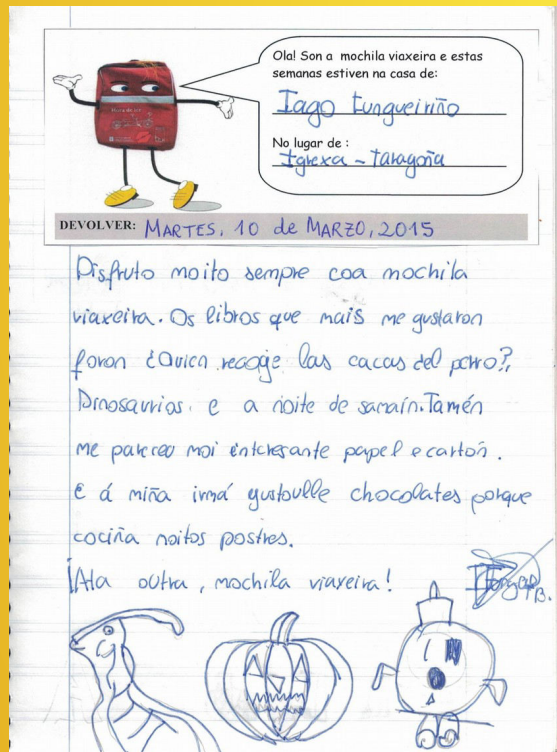 Ola! Son a mochila viaxeira e estas
semanas estiven na casa de:
Iago Tungueiriño
No lugar de :
Igrexa - Taragoña
DEVOLVER: MARTES, 10 de MARZO, 2015
Disfruto moito sempre coa mochila
viaxeira. Os libros que mais me gustaron
foron ¿Quien recoge las cacas del perro?,
Dinosaurios. e a noite de samaín. Tamén
me pareceo moi interesante papel e cartón.
E á miña irmá gustoulle chocolates porque
cociña moitos postres.
¡Ata outra, mochila viaxeira!